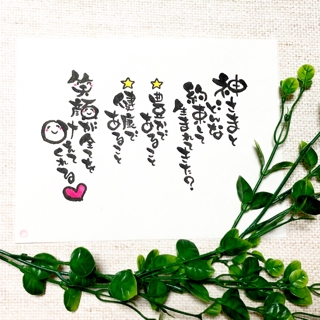 神さまと
どんな
約束して
生まれてきた？
豊かで
あること
健康で
あること
笑顔が全てを
叶えて
くれてる